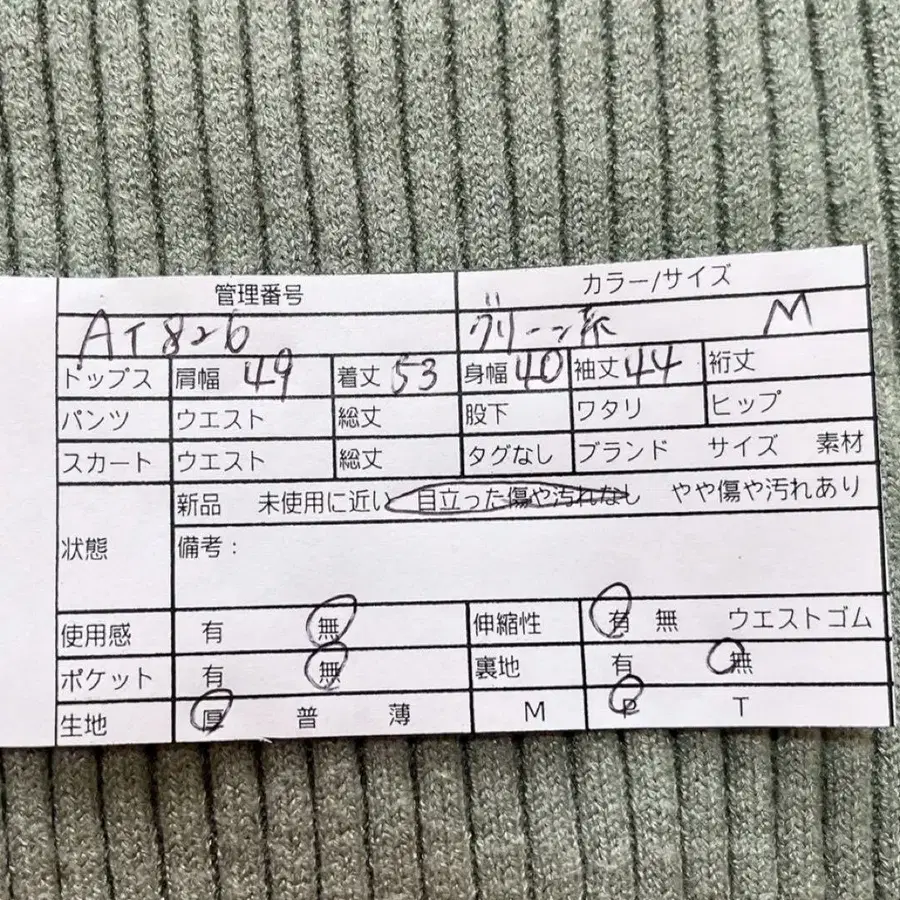 管理番号 カラー/サイズ
AT826 グリーン系 M
トップス 肩幅 49 着丈 53 身幅 40 袖丈 44 裄丈
パンツ ウエスト 総丈 股下 ワタリ ヒップ
スカート ウエスト 総丈 タグなし ブランド サイズ 素材
新品 未使用に近い 目立った傷や汚れなし やや傷や汚れあり
状態 備考:
使用感 有 無 伸縮性 有 無 ウエストゴム
ポケット 有 無 裏地 有 無
生地 厚 普 薄 M P T